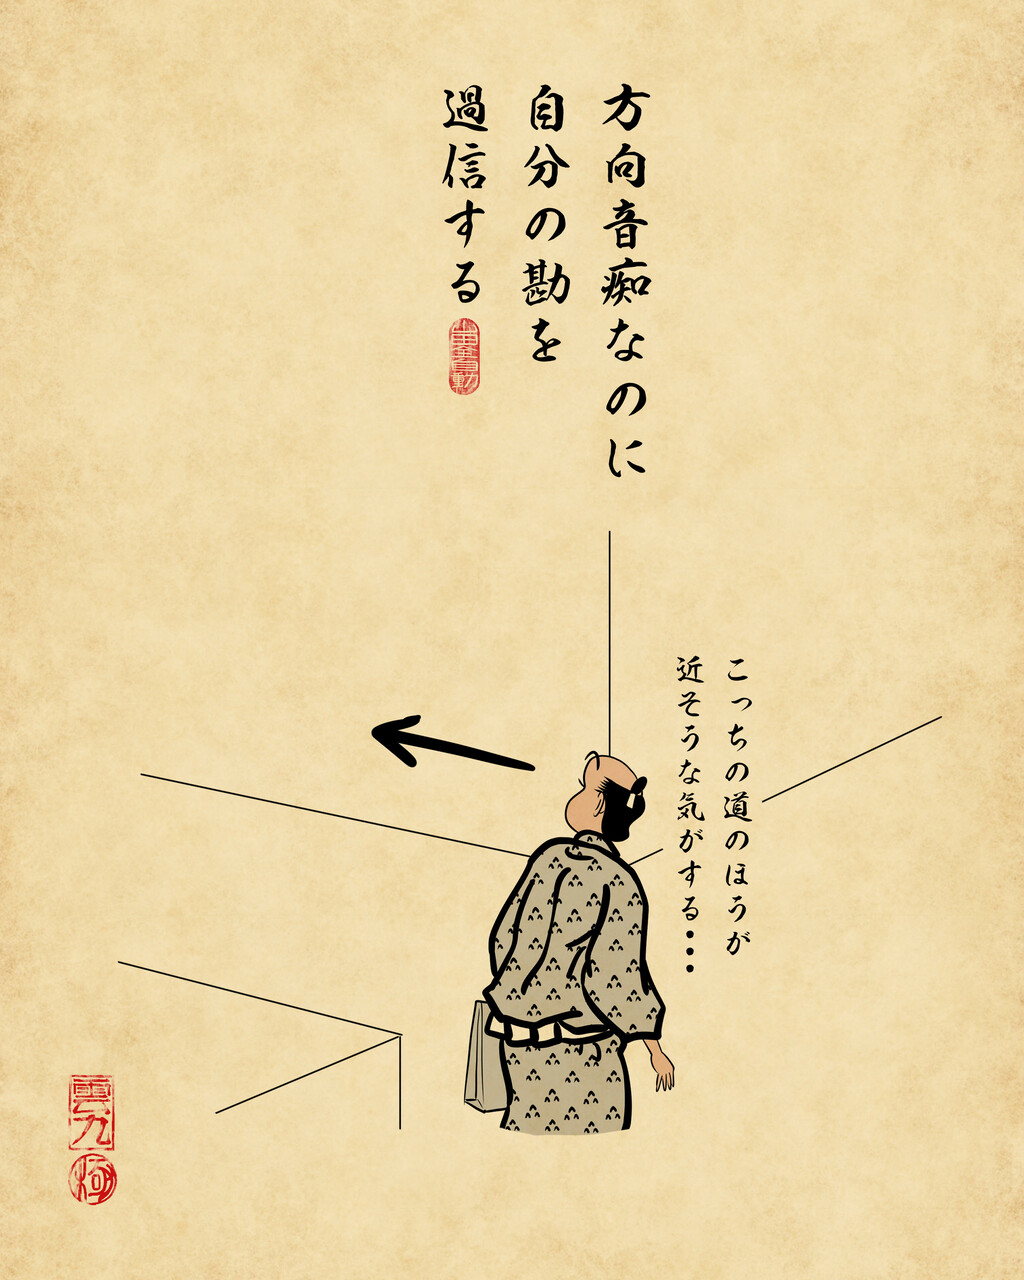 方向音痴なのに
自分の勘を
過信する
こっちの道のほうが
近そうな気がする・・・